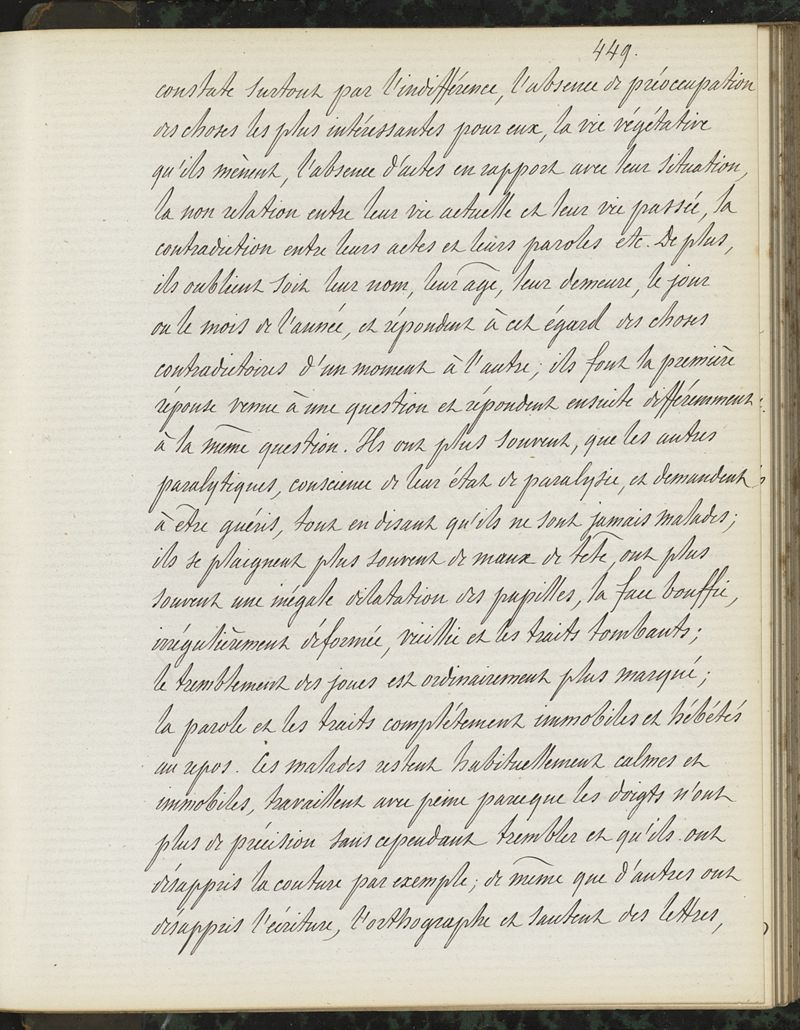 449.
constate surtout par l'indifférence, l'absence de préoccupation
des choses les plus intéressantes pour eux, la vie végétative
qu'ils mènent, l'absence d'actes en rapport avec leur situation,
la non relation entre leur vie actuelle et leur vie passée, la
contradiction entre leurs actes et leurs paroles etc. De plus,
ils oublient soit leur nom, leur âge, leur demeure, le jour
ou le mois de l'année, et répondent à cet égard des choses
contradictoires d'un moment à l'autre; ils font la première
réponse venue à une question et répondent ensuite différemment
à la même question. Ils ont plus souvent, que les autres
paralytiques, conscience de leur état de paralysie, et demandent
à être guéris, tout en disant qu'ils ne sont jamais malades;
ils se plaignent plus souvent de maux de tête, ont plus
souvent une inégale dilatation des pupilles, la face bouffie,
irrégulièrement déformée, vieillie et les traits tombants;
le tremblement des joues est ordinairement plus marqué;
la parole et les traits complétement immobiles et hébétés
au repos. Ces malades restent habituellement calmes et
immobiles, travaillent avec peine parceque les doigts n'ont
plus de précision sans cependant trembler et qu'ils ont
désappris la couture par exemple; de même que d'autres ont
désappris l'écriture, l'orthographe et sautent des lettres,